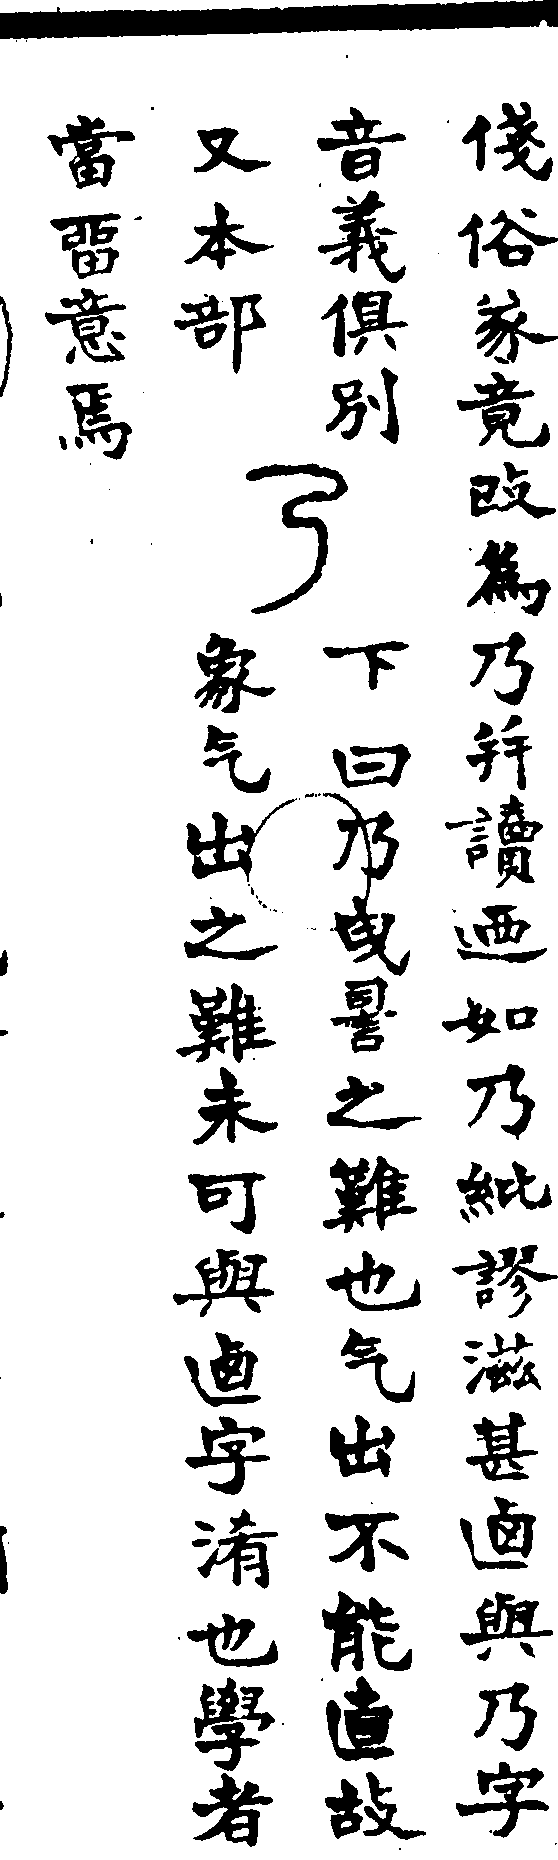 俴俗豙竟改為乃并讀迺如乃紕謬滋甚逌與乃字
音義俱別
又本部𠄎下曰乃曳䛐之難也气出不能直故
象气出之難未可與逌字淆也學者
當畱意焉